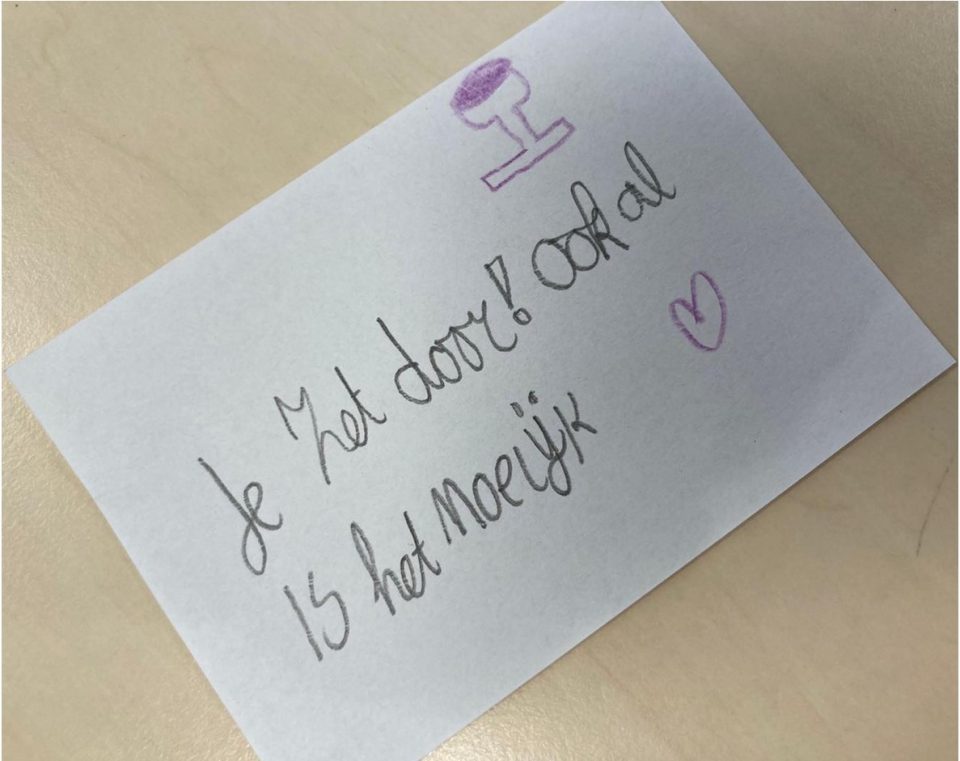 Je zet door! Ook al
is het moeijk